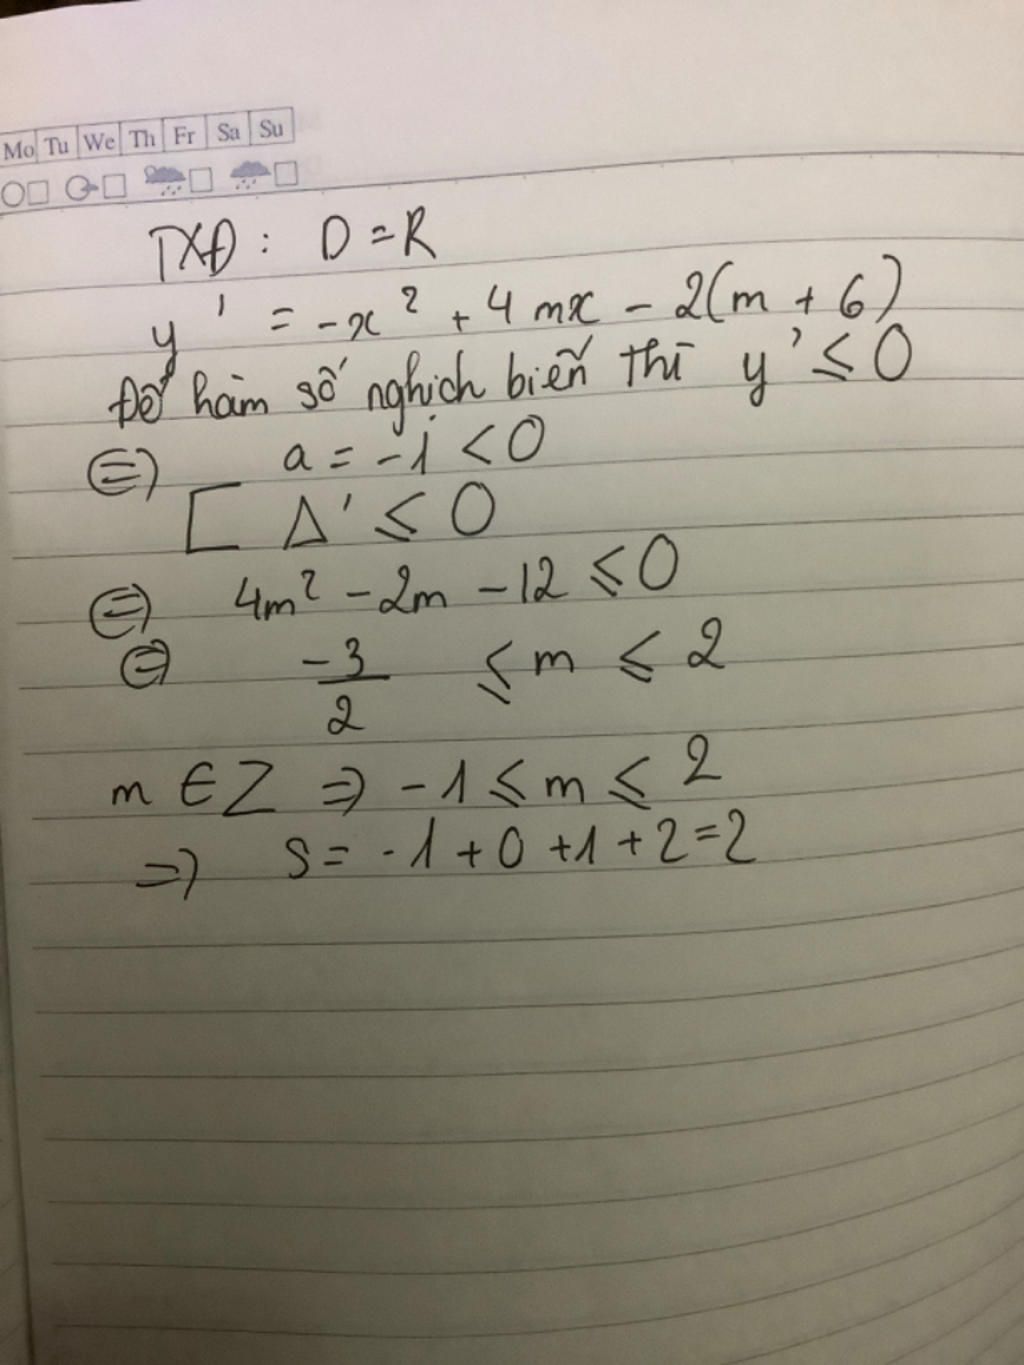 Mo Tu We Th Fr Sa Su
TXĐ : D = R
y' = -x² + 4mx - 2(m + 6)
Để hàm số nghịch biến thì y' ≤ 0
⇔ a = -1 < 0
[ Δ' ≤ 0
⇔ 4m² - 2m - 12 ≤ 0
⇔ -3/2 ≤ m ≤ 2
m ∈ Z ⇒ -1 ≤ m ≤ 2
⇒ S = -1 + 0 + 1 + 2 = 2